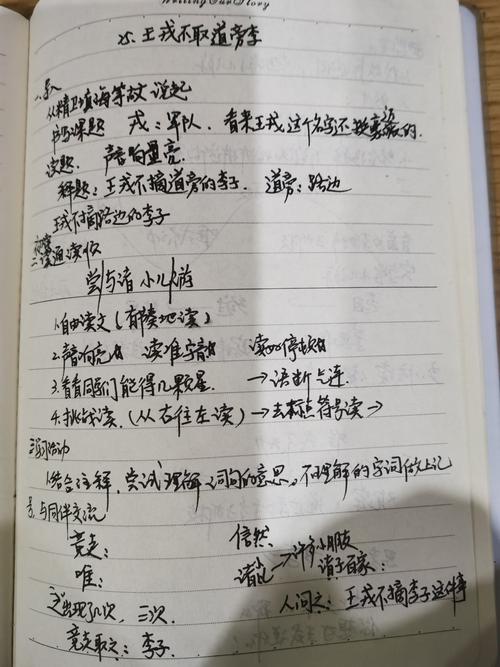 Writing Our Story
25. 王戎不取道旁李
一、导入
从精卫填海等故事说起
书写课题 戎：军队. 看来王戎这个名字还挺的.
读题. 声音响亮.
释题：王戎不摘道旁的李子. 道旁：路边
王戎不摘路边的李子
二、读通读顺
尝与诸小儿游
1.自由读文（有节奏地读）
2.声音响亮 读准字音 读好停顿
3.看看同学们能得几颗星. →语断气连.
4.挑战读.（从右往左读）→去标点符号读→
三、活动
1.结合注释，尝试理解词句的意思。不理解的字词做上记
号、与同伴交流
竞走： 信然
唯： 诸小儿→许多小朋友 诸子百家：
之出现了几次，三次. 人问之：王戎不摘李子这件事
竞走取之：李子